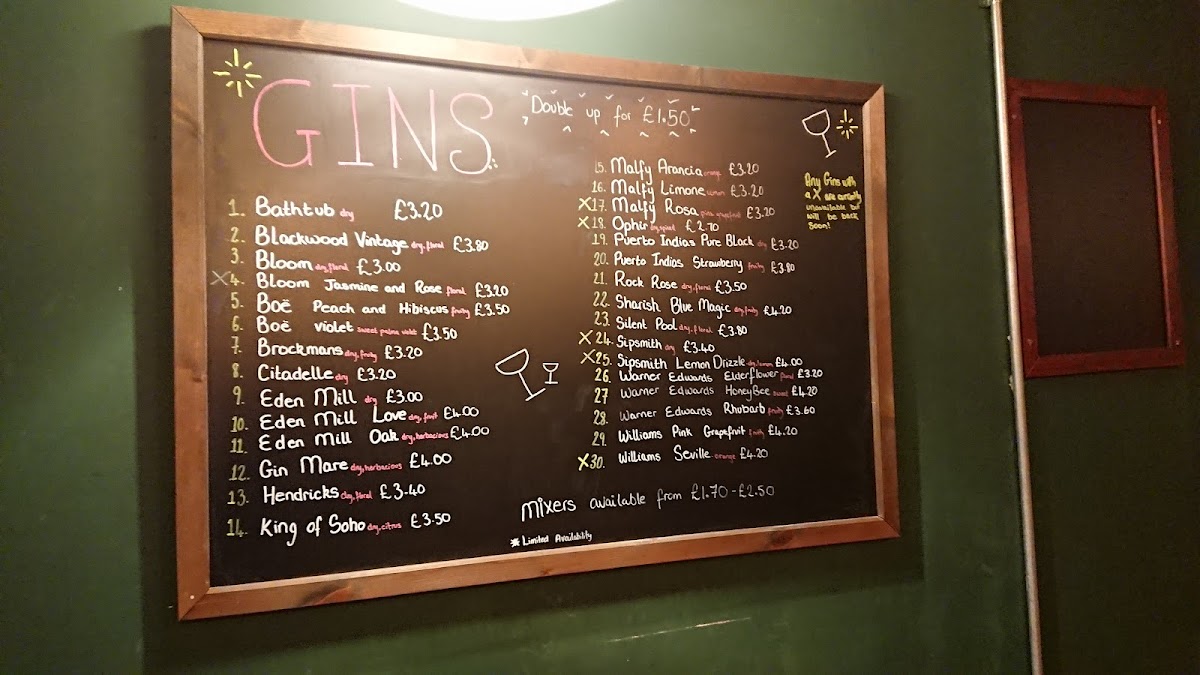 GINS
Double up for £1.50
1. Bathtub dry £3.20
2. Blackwood Vintage dry, floral £3.80
3. Bloom dry, floral £3.00
X 4. Bloom Jasmine and Rose floral £3.20
5. Boë Peach and Hibiscus fruity £3.50
6. Boë violet sweet palma violet £3.50
7. Brockmans dry, fruity £3.20
8. Citadelle dry £3.20
9. Eden Mill dry £3.00
10. Eden Mill Love dry, fruit £4.00
11. Eden Mill Oak dry, herbacious £4.00
12. Gin Mare dry, herbacious £4.00
13. Hendricks dry, floral £3.40
14. King of Soho dry, citrus £3.50
15. Malfy Arancia orange £3.20
16. Malfy Limone lemon £3.20
X 17. Malfy Rosa pink grapefruit £3.20
X 18. Ophir £2.70
19. Puerto Indias Pure Black dry £3.20
20. Puerto Indias Strawberry fruity £3.80
21. Rock Rose dry, floral £3.50
22. Sharish Blue Magic dry, fruity £4.20
23. Silent Pool dry, floral £3.80
X 24. Sipsmith dry £3.40
X 25. Sipsmith Lemon Drizzle dry, lemon £4.00
26. Warner Edwards Elderflower floral £3.20
27 Warner Edwards HoneyBee £4.20
28. Warner Edwards Rhubarb fruity £3.60
29. Williams Pink Grapefruit fruity £4.20
X 30. Williams Seville orange £4.20
Any Gins with
a X are currently
unavailable but
will be back
soon!
Mixers available from £1.70 - £2.50
* Limited Availability